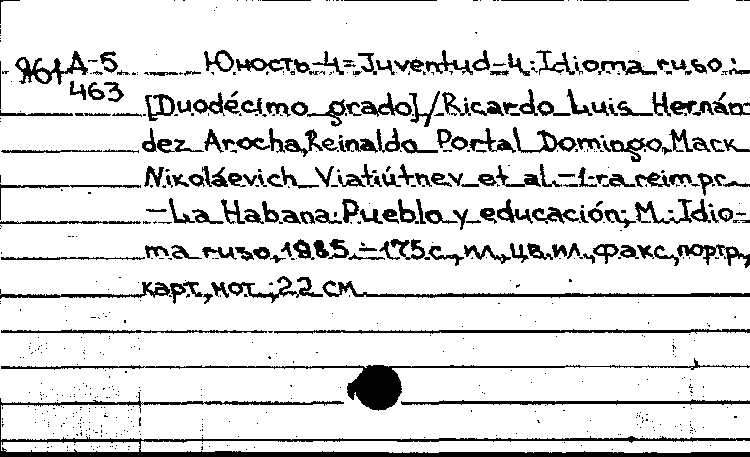 Я61 Д-5 Юность-4=Juventud-4: Idioma ruso:
463 [Duodécimo grado]/Ricardo Luis Hernán-
dez Arocha, Reinaldo Portal Domingo, Марк
Nikoláevich Viatiútnev et al.-1-ra reimpr.
-La Habana: Pueblo y educación; M.: Idio-
ma ruso, 1985.-175с., ил., цв.ил., факс., портр.,
карт., нот.; 22 см.